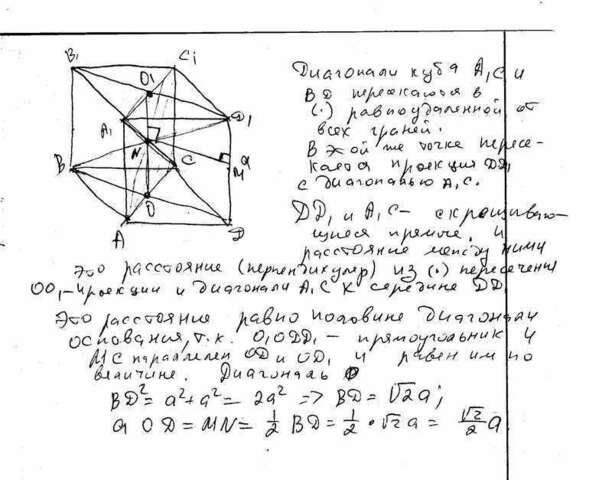 B₁
C₁
O₁
A₁
D₁
N
B
C
a
M
O
A
D
Диагонали куба A₁C и
BD пересекаются в
(·) равноудаленной от
всех граней.
В этой же точке пересе-
кается проекция DD₁
с диагональю A₁C.
DD₁ и A₁C – скрещиваю-
щиеся прямые, и
расстояние между ними
это расстояние (перпендикуляр) из (·) пересечения
OO₁-проекции и диагонали A₁C к середине DD₁
Это расстояние равно половине диагонали
основания, т.к. O₁ODD₁ – прямоугольник и
MC параллелен OD и OD₁ и равен им по
величине. Диагональ
BD² = a² + a² = 2a² => BD = √2a;
a OD = MN = 1/2 BD = 1/2 · √2a = √2/2 a